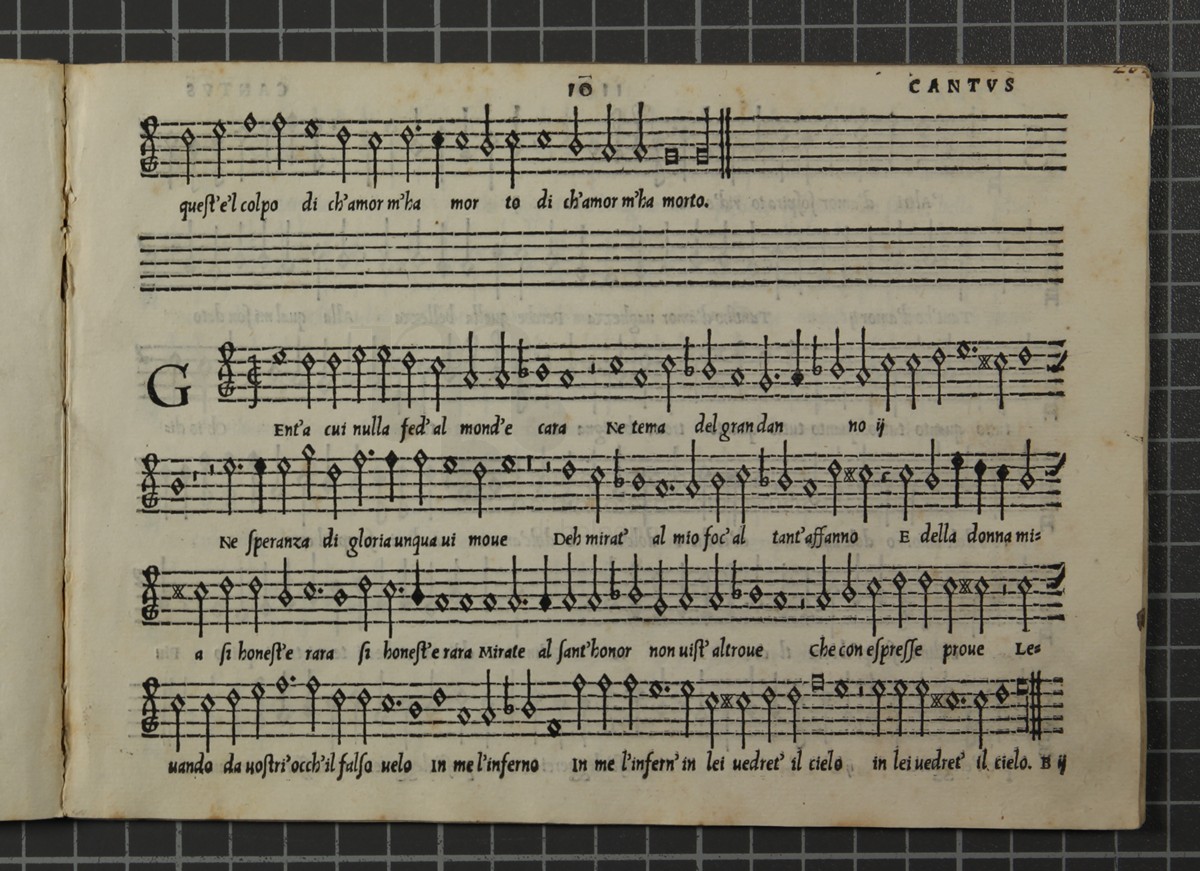 10 CANTVS
queſt'e'l colpo di ch'amor m'ha mor to di ch'amor m'ha morto.
G
Ent'a cui nulla fed' al mond'e cara Ne tema del gran dan no ij
Ne ſperanza di gloria unqua ui moue Deh mirat' al mio foc' al tant'affanno E della donna mi=
a ſi honeſt'e rara ſi honeſt'e rara Mirate al ſant'honor non uiſt' altroue Che con eſpreſſe proue Le=
uando da uoſtri'occh'il falſo uelo In me l'inferno In me l'infern' in lei uedret' il cielo in lei uedret' il cielo. B ij